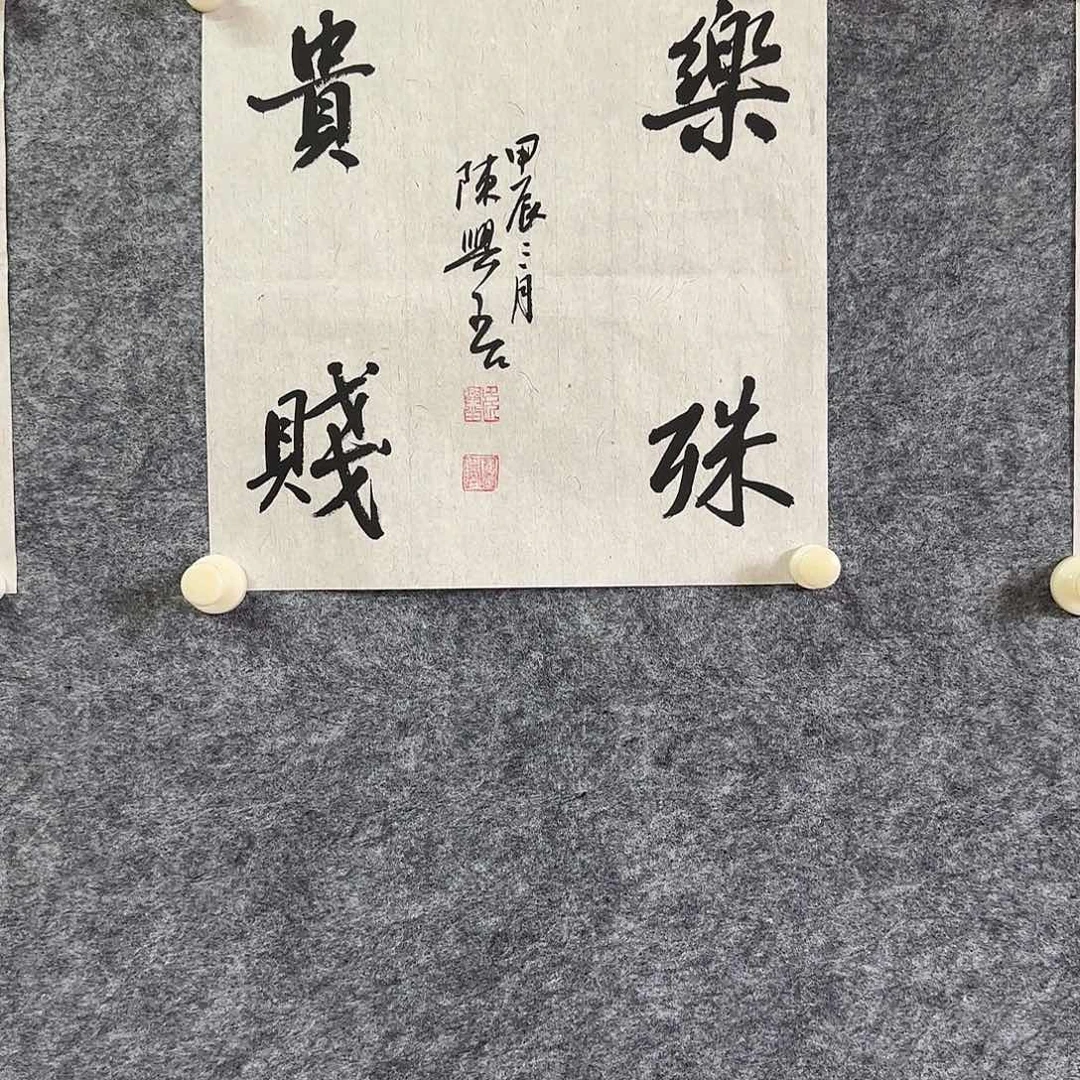 樂殊
貴賤
甲辰二月
陳興吾